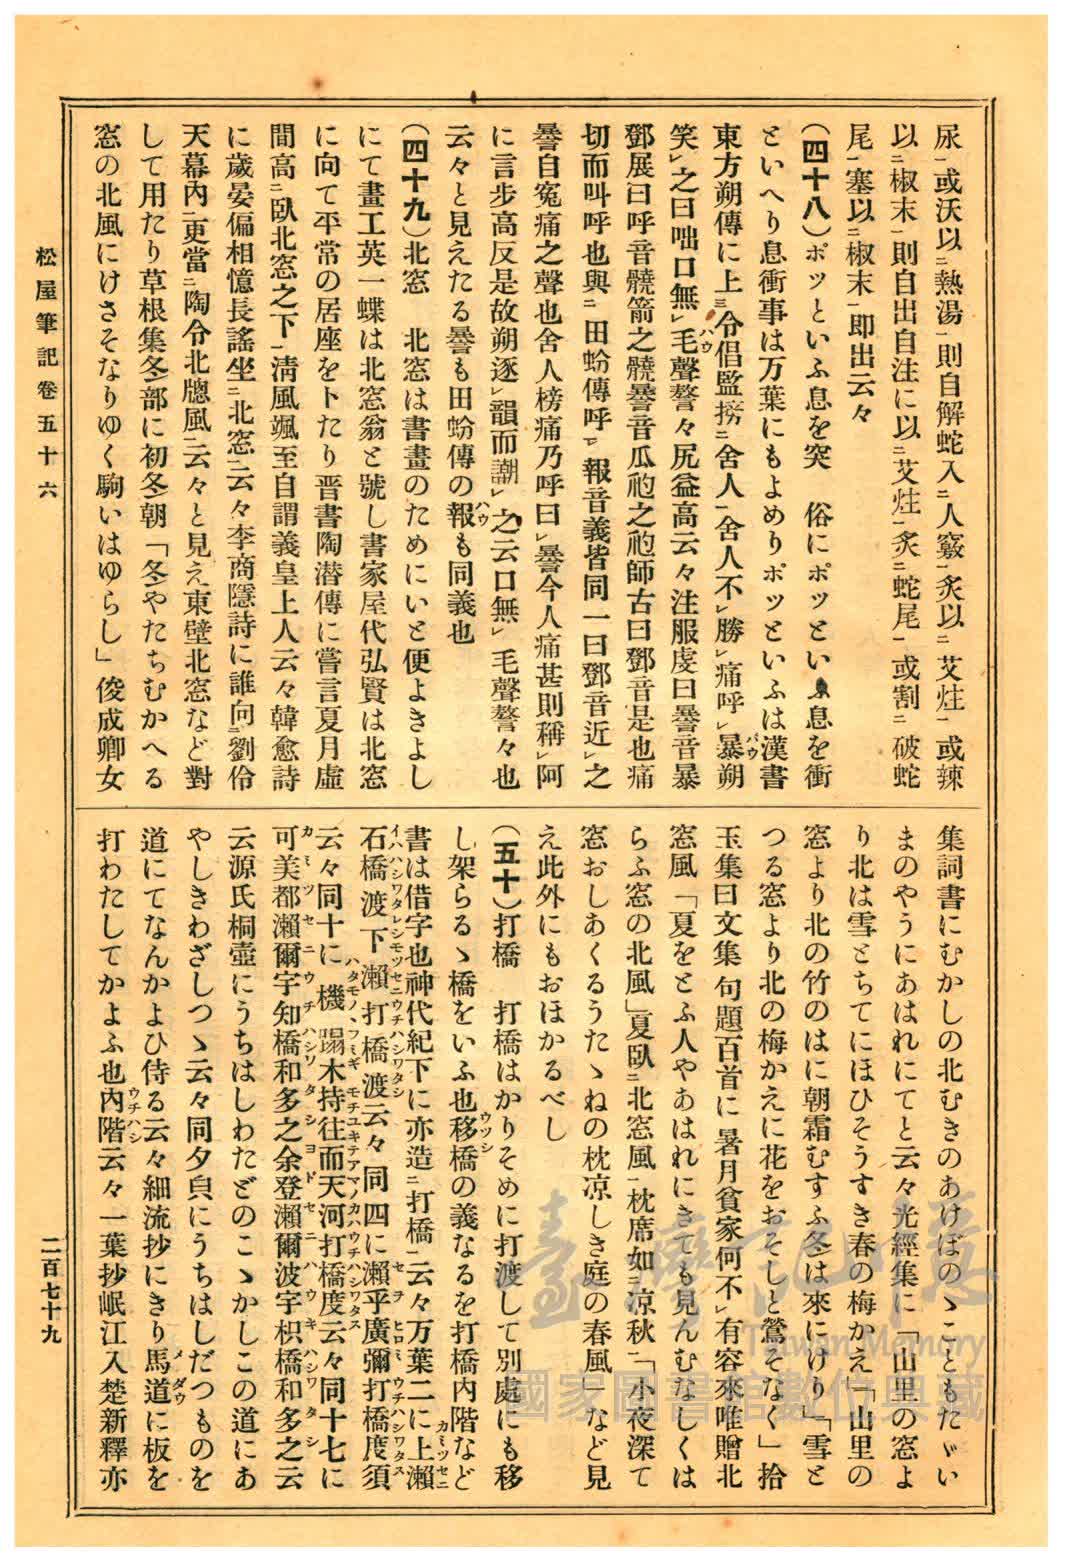 尿一或沃以二熱湯一則自解蛇入二人竅一炙以二艾炷一或辣
以二椒末一則自出自注に以二艾炷一炙二蛇尾一或割二破蛇
尾一塞以二椒末一即出云々
（四十八）ポッといふ息を突　俗にポッといふ息を衝
といへり息衝事は万葉にもよめりポッといふは漢書
東方朔傳に上三令倡監搒二舍人一舍人不レ勝レ痛呼レ暴朔
笑レ之曰咄口無レ毛聲謷々尻益高云々注服虔曰謈音暴
鄧展曰呼音髐箭之髐謈音瓜瓝之瓝師古曰鄧音是也痛
切而叫呼也與二田蚡傳呼一報音義皆同一曰鄧音近レ之
謈自寃痛之聲也舍人榜痛乃呼曰レ謈今人痛甚則稱レ阿
に言步高反是故朔逐レ韻而謿レ之云口無レ毛聲謷々也
云々と見えたる謈も田蚡傳の報も同義也
（四十九）北窓　北窓は書畫のためにいと便よきよし
にて畫工英一蝶は北窓翁と號し書家屋代弘賢は北窓
に向て平常の居座を卜たり晋書陶潜傳に嘗言夏月虛
間高二臥北窓之下一淸風颯至自謂義皇上人云々韓愈詩
に歲晏偏相憶長謠坐二北窓一云々李商隱詩に誰向二劉伶
天幕內一更當二陶令北牕風一云々と見え東壁北窓など對
して用たり草根集冬部に初冬朝「冬やたちむかへる
窓の北風にけさそなりゆく駒いはゆらし」俊成卿女
集詞書にむかしの北むきのあけぼのゝこともたゞい
まのやうにあはれにてと云々光經集に「山里の窓よ
り北は雪とちてにほひそうすき春の梅かえ」「山里の
窓より北の竹のはに朝霜むすふ冬は來にけり」「雪と
つる窓より北の梅かえに花をおそしと鶯そなく」拾
玉集曰文集句題百首に暑月貧家何不レ有容來唯贈北
窓風「夏をとふ人やあはれにきても見んむなしくは
らふ窓の北風」夏臥二北窓風一枕席如二凉秋一「小夜深て
窓おしあくるうたゝねの枕凉しき庭の春風」など見
え此外にもおほかるべし
（五十）打橋　打橋はかりそめに打渡して別處にも移
し架らるゝ橋をいふ也移橋の義なるを打橋內階など
書は借字也神代紀下に亦造二打橋一云々万葉二に上瀬
石橋渡下瀬打橋渡云々同四に瀬乎廣彌打橋度須
云々同十に機蹋木持往而天河打橋度云々同十七に
可美都瀬爾宇知橋和多之余登瀬爾波宇枳橋和多之云
云源氏桐壺にうちはしわたどのこゝかしこの道にあ
やしきわざしつゝ云々同夕㒵にうちはしだつものを
道にてなんかよひ侍る云々細流抄にきり馬道に板を
打わたしてかよふ也內階云々一葉抄岷江入楚新釋亦
松屋筆記卷五十六
二百七十九
臺灣記憶
Taiwan Memory
國家圖書館數位典藏